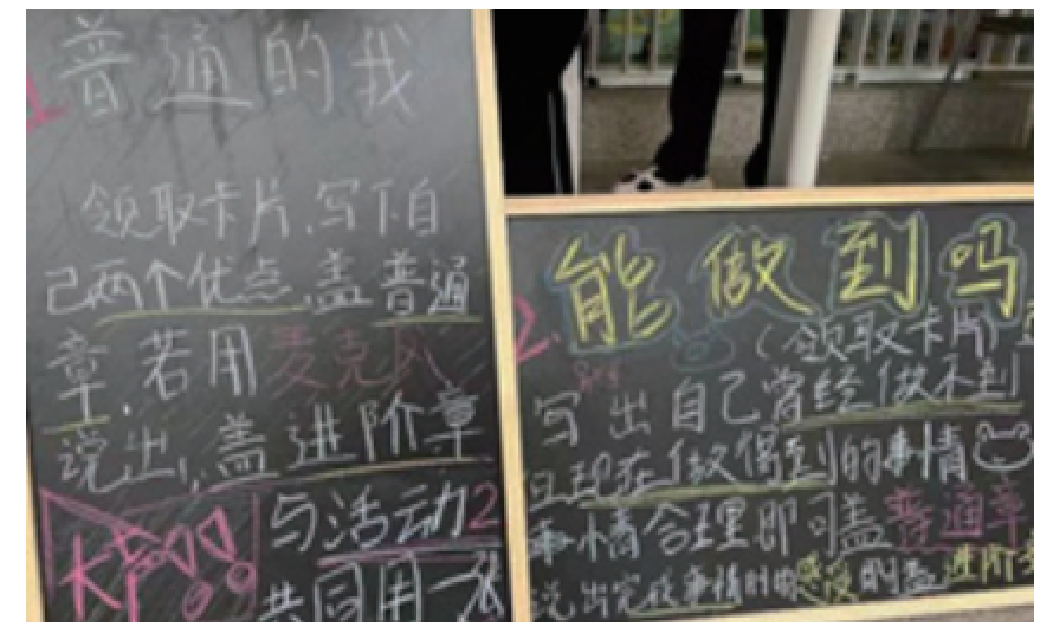 1.普通的我
领取卡片.写下自
己两个优点.盖普通
章.若用麦克风
说出,盖进阶章
与活动2
共同用一张
2.能做到吗
(领取卡片)
写出自己曾经做不到
且现在做得到的事情
事情合理即可盖普通章
说出完成事情时的感受则盖进阶章